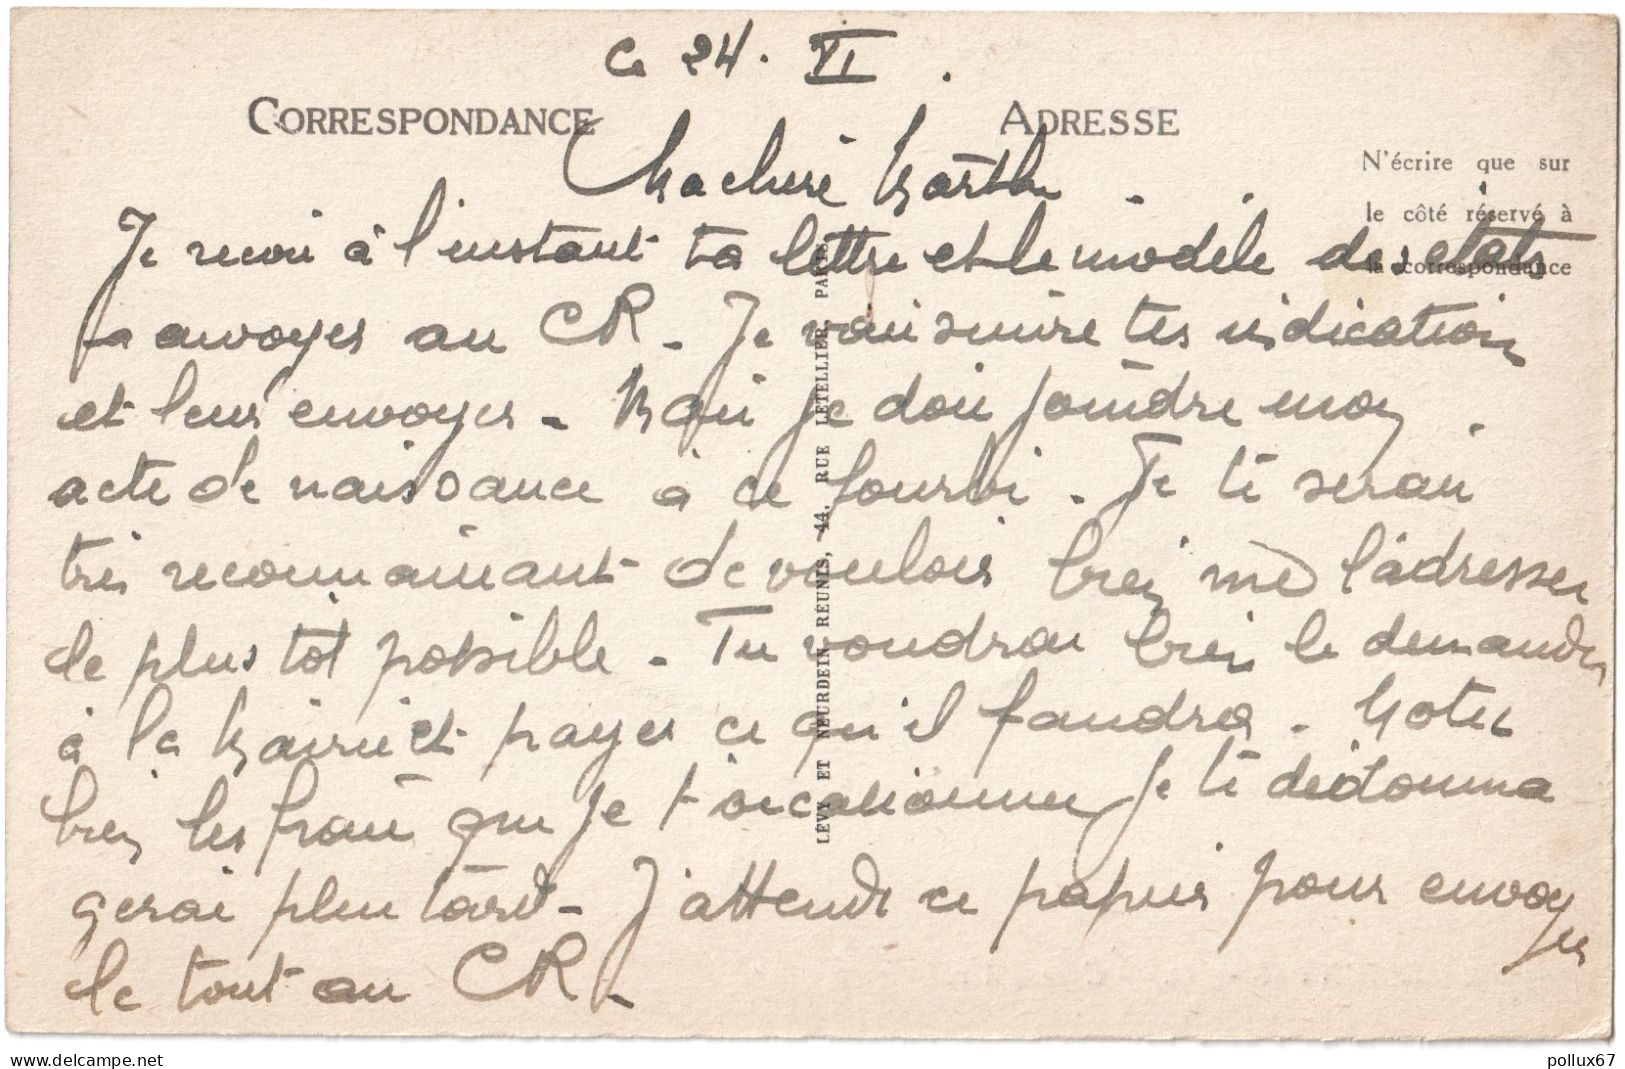 Ce 24. VI.
CORRESPONDANCE
ADRESSE
N'écrire que sur
le côté réservé à
la correspondance
Ma chère Marthe.
Je recoi à l'instant ta lettre et le modèle des etats
a envoyer au CR. Je vais suivre tes indication
et leur envoyer. Mais je dois joindre mon
acte de naissance à ce fourbi. Je te serais
très reconnaissant de vouloir bien me l'adresser
le plus tôt possible. Tu voudras bien le demander
à la Mairie et payer ce qu'il faudra. Notes
bien les frais que je t'occasionne je te dédomma
gerai plus tard. J'attends ce papier pour envoyer
le tout au CR.
LÉVY ET NEURDEIN RÉUNIS, 44, RUE LETELLIER, PARIS
pollux67
www.delcampe.net